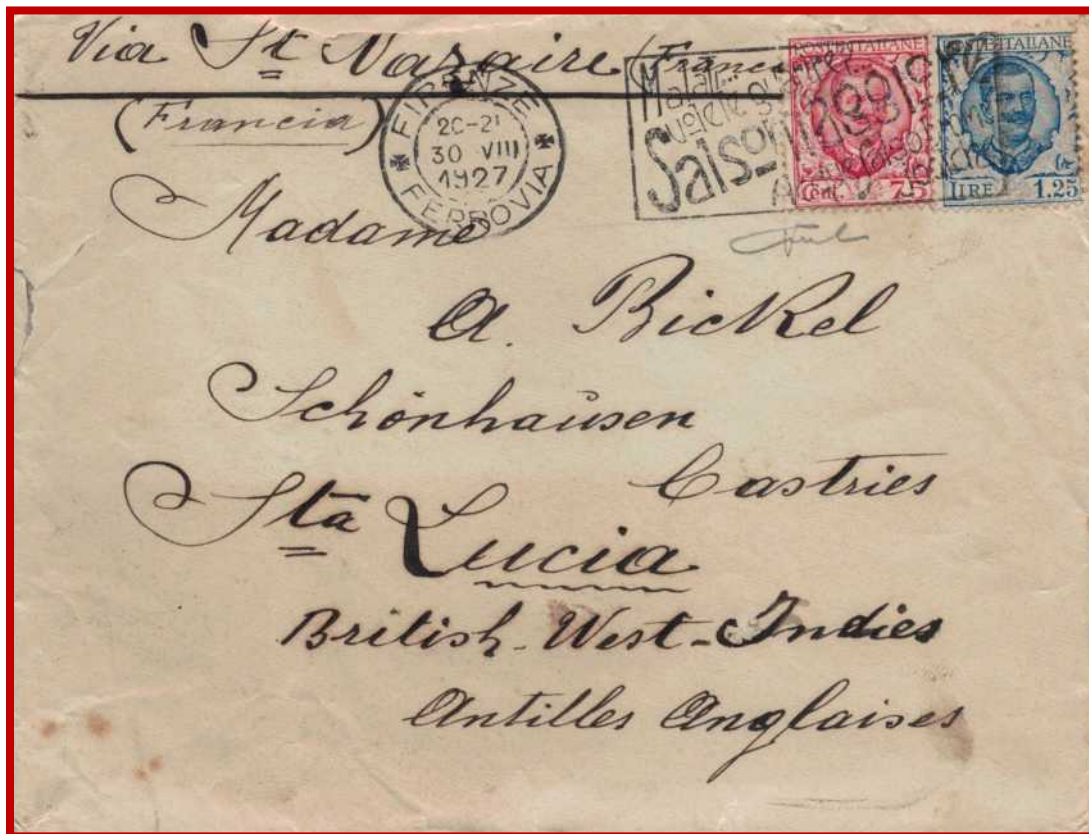 Via St Nazaire (Franc
(Francia)
FIRENZE
20-21
30 VIII
1927
FERROVIA
POSTE ITALIANE
Cent. 75
POSTE ITALIANE
LIRE 1.25
Madame
A. Bickel
Schönhaüsen
Castries
Sta Lucia
British-West-Indies
Antilles Anglaises